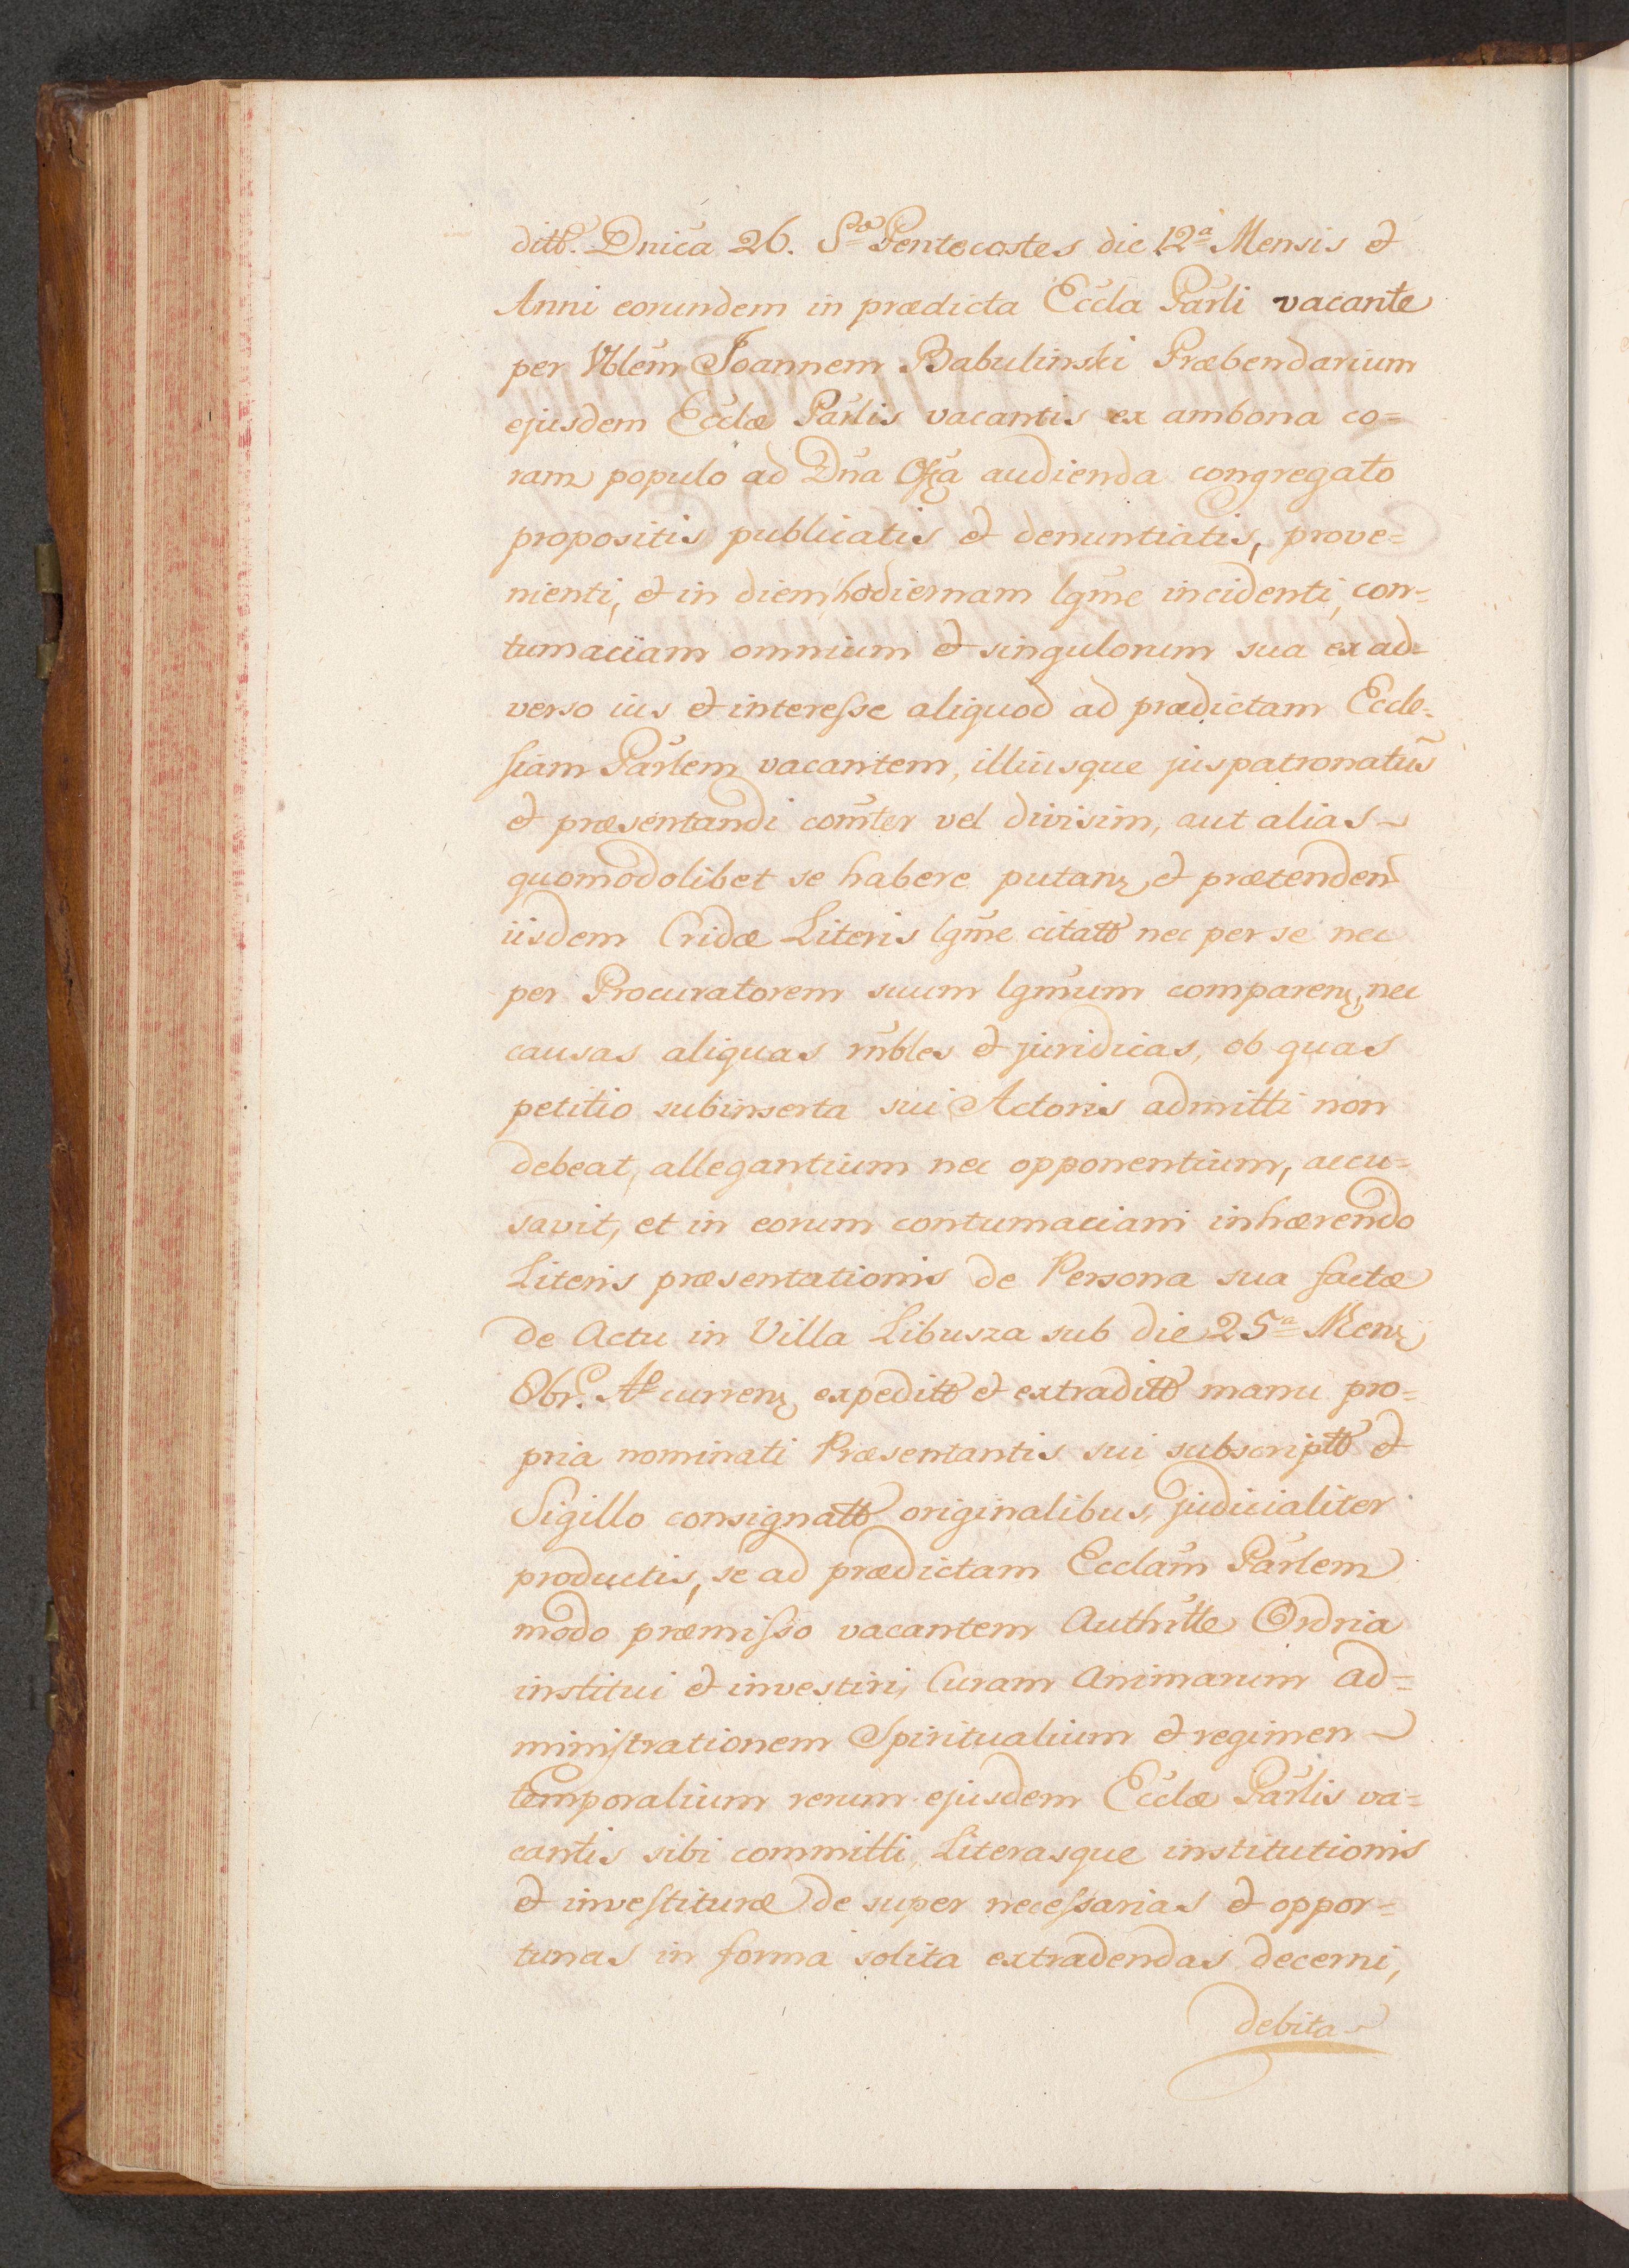 ditt. Dnica 26. S. Pentecostes die 12a Mensis et
Anni eorundem in prædicta Eccla Parli vacante
per Vblem Joannem Babulinski Præbendarium
ejusdem Ecclæ Parlis vacantis ex ambona co=
ram populo ad Dna Offa audienda congregato
propositis publicatis et denuntiatis, prove=
nienti, et in diem hodiernam lgme incidenti, con=
tumaciam omnium et singulorum sua ex ad=
verso ius et interesse aliquod ad prædictam Eccle=
siam Parlem vacantem, illiusque juspatronatus
et præsentandi comter vel divisim, aut alias
quomodolibet se habere putan et prætenden
iisdem Cridæ Literis lgme citatt nec per se nec
per Procuratorem suum lgmum comparen, nec
causas aliquas rnbles et juridicas, ob quas
petitio subinserta sui Actoris admitti non
debeat, allegantium nec opponentium, accu=
savit, et in eorum contumaciam inhærendo
Literis præsentationis de Persona sua factæ
de Actu in Villa Libusza sub die 25a Mens
Obr. Ao curren expeditt et extraditt manu pro=
pria nominati Præsentantis sui subscriptt et
Sigillo consignatt originalibus, judicialiter
productis, se ad prædictam Ecclam Parlem
modo præmisso vacantem Authritte Ordria
institui et investiri, Curam Animarum ad=
ministrationem Spiritualium et regimen
temporalium rerum ejusdem Ecclæ Parlis va=
cantis sibi committi, Literasque institutionis
et investituræ de super necessarias et oppor=
tunas in forma solita extradendas decerni,
debita